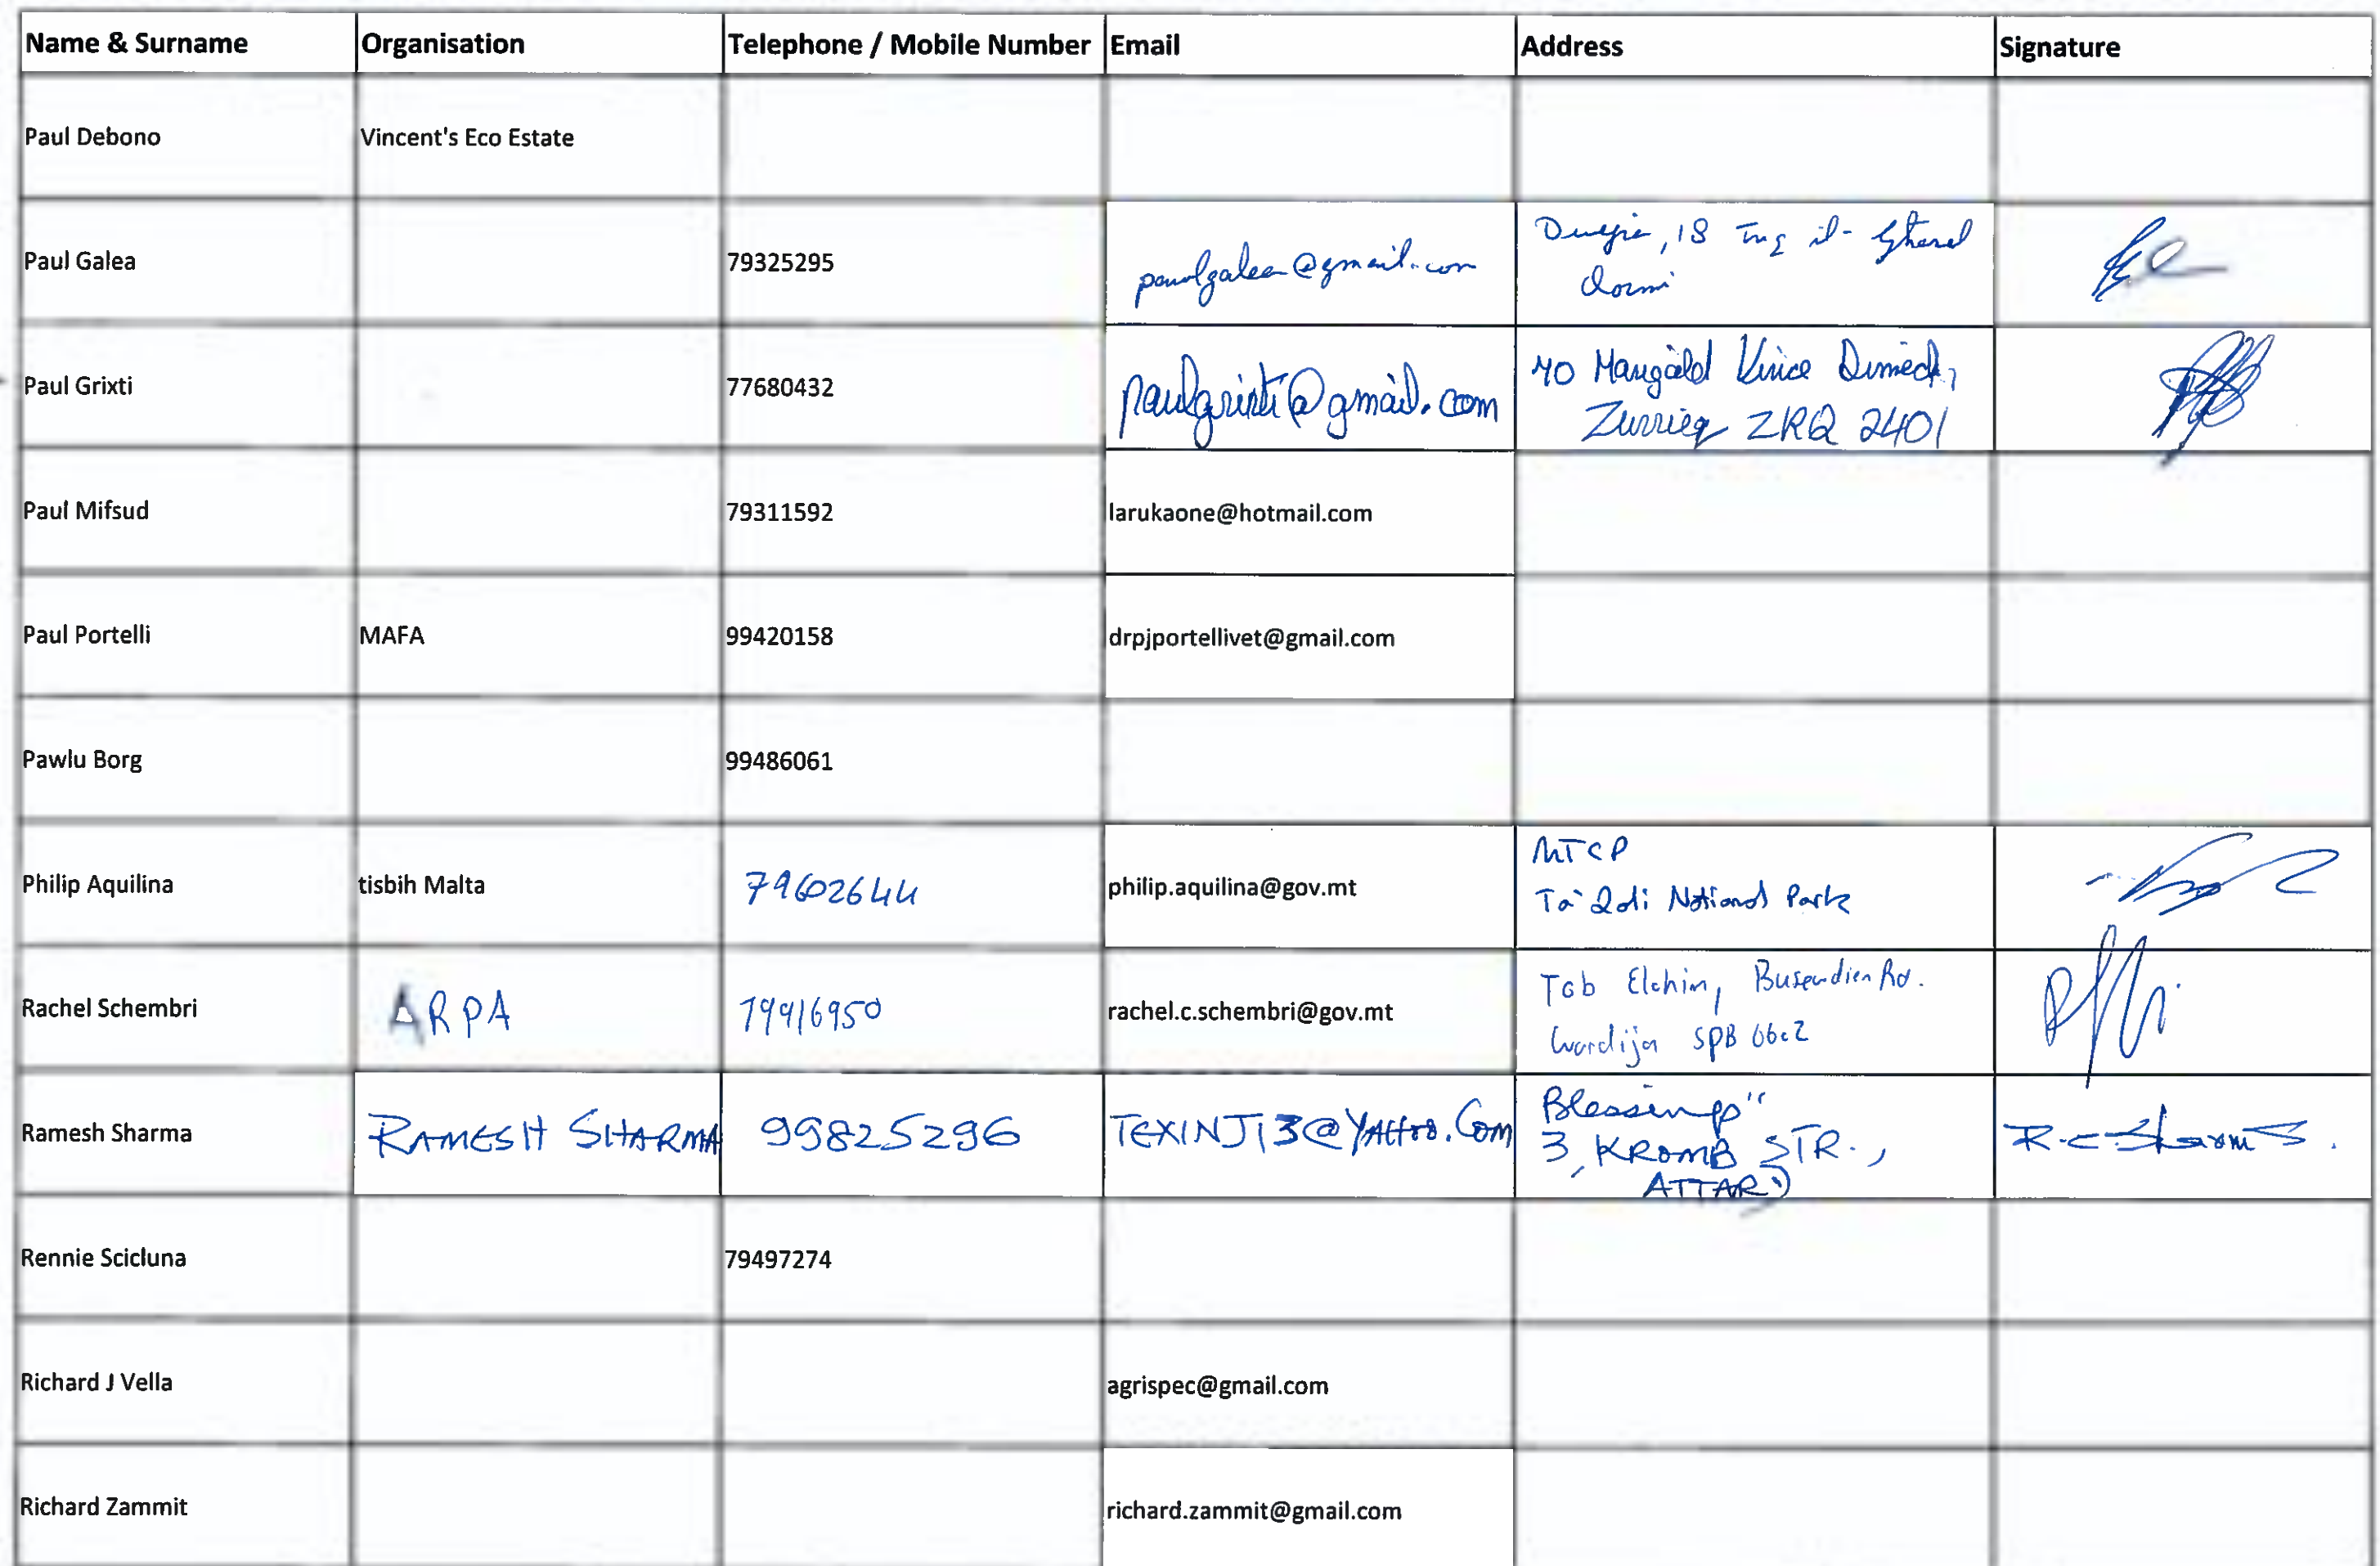 Name & Surname Organisation Telephone / Mobile Number Email Address Signature
Paul Debono Vincent's Eco Estate
Paul Galea 79325295 paulgalea@gmail.com 18 Triq il-
Qormi
Paul Grixti 77680432 paulgrixti@gmail.com 40 Vince Dimech,
Zurrieq ZRQ 2401
Paul Mifsud 79311592 larukaone@hotmail.com
Paul Portelli MAFA 99420158 drpjportellivet@gmail.com
Pawlu Borg 99486061
Philip Aquilina tisbih Malta 79602644 philip.aquilina@gov.mt MTCP
Ta' Qali National Park
Rachel Schembri ARPA 79916950 rachel.c.schembri@gov.mt Rd.
Wardija SPB
Ramesh Sharma RAMESH SHARMA 99825296 TEXINJ13@YAHOO.Com Blessings"
3, KROMB STR.,
ATTARD
R.C Sharma.
Rennie Scicluna 79497274
Richard J Vella agrispec@gmail.com
Richard Zammit richard.zammit@gmail.com